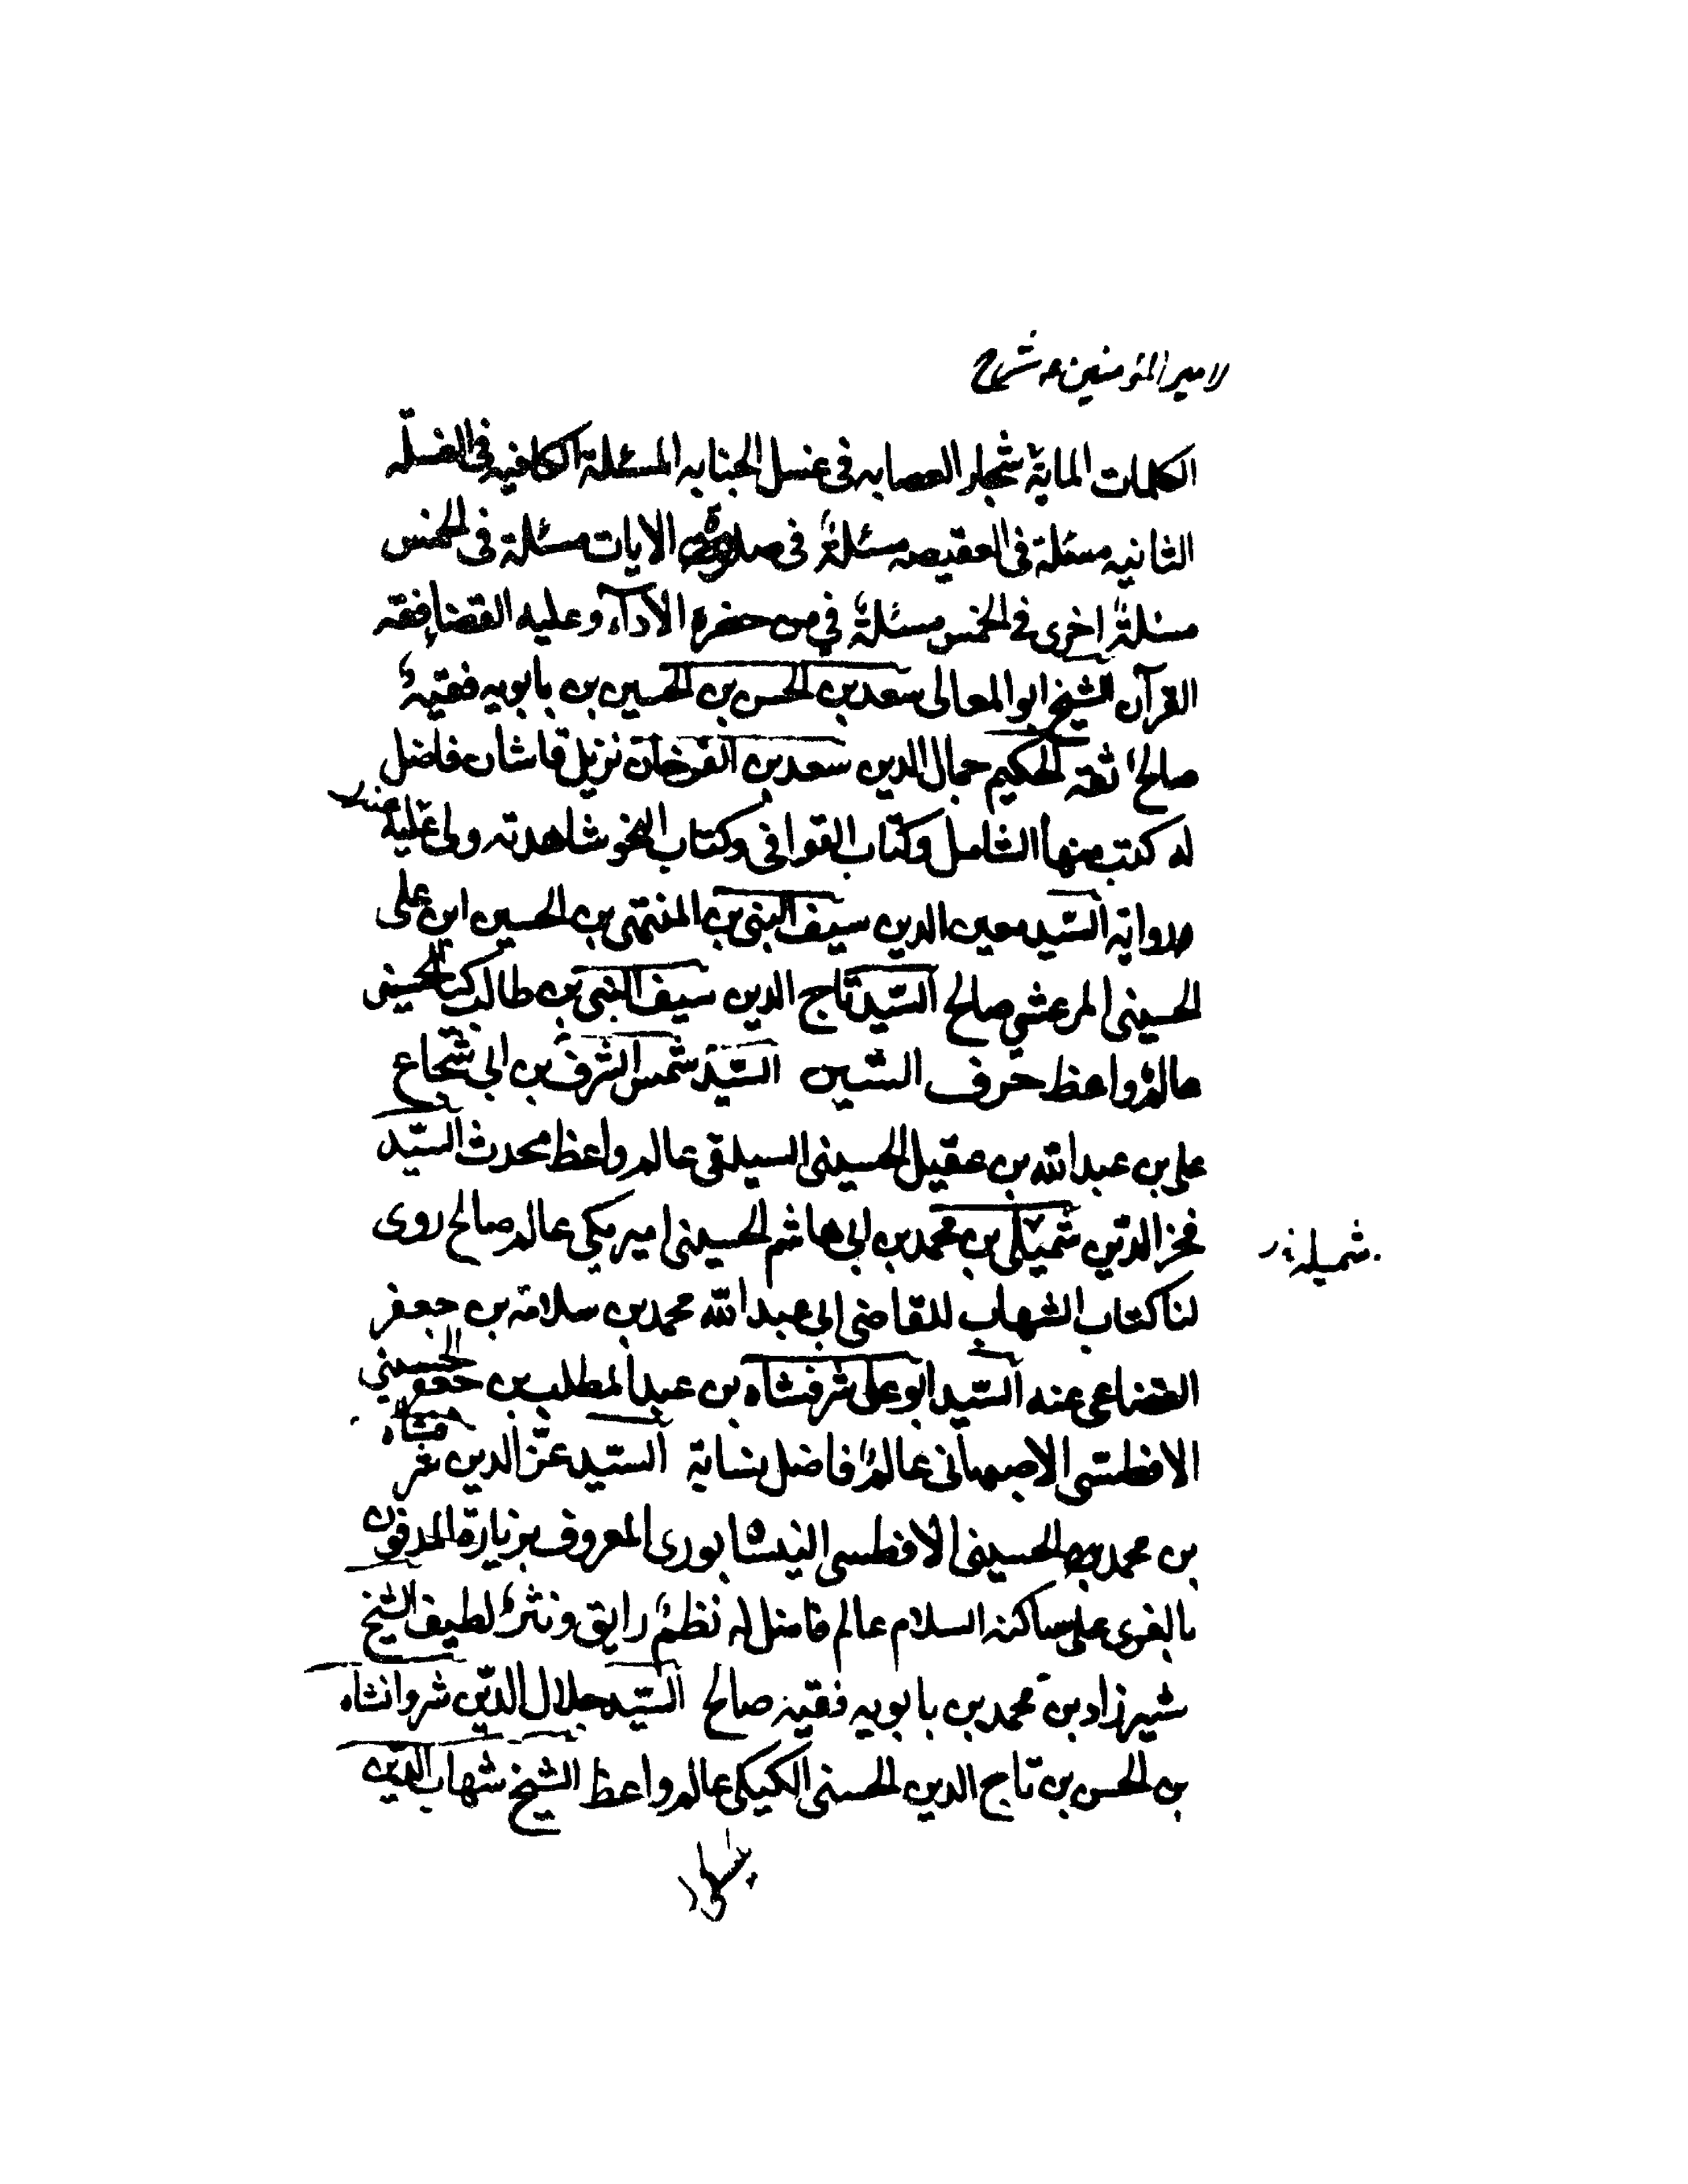 لامیر المؤمنین ع شرح
الکلمات المایة شجار العصابه فی غسل الجنابه المسئلة الکافیه فی الغسلة
الثانیه مسئلة فی العقیصه مسئلةٌ فی صلاة الایات مسئلة فی الخمس
مسئلةٌ اخری فی الخمس مسئلةٌ فی من حضره الاداۤء وعلیه القضا فقه
القرآن الشیخ ابو المعالی سعد بن الحسن بن الحسین بن بابویه فقیهٌ
صالح ثقه الحکیم جمال الدین سعد بن الفرخان نزیل قاشان فاضل
له کتب منها الشامل وکتاب القوافی وکتاب النحو شاهدته ولی علیه عنه
روایة السّید معین الدین سیف النبی بن المنتهی بن الحسین ابن علی
الحسینی المرعشی صالح السّید تاج الدین سیف النبی بن طالب کیا الحسینی
عالمٌ واعظ حرف الشین السّید شمس الشرف بن ابی شجاع
علی بن عبد الله بن عقیل الحسینی السیلقی عالم واعظ محدث السّید
فخر الدّین شمیلی بن محمد بن ابی هاشم الحسینی امیر مکی عالم صالح روی
شمیلة ن ر
لنا کتاب الشهاب للقاضی ابی عبد الله محمد بن سلامة بن جعفر
القضاعی عنه السّید ابو علی شرفشاه بن عبد المطلب بن جعفر الحسینی
الافطسی الاصبهانی عالمٌ فاضل نسابة السّید عزّ الدین شرفشاه
بن محمد الحسینی الافطسی النیشابوری المعروف بزیارة المدفون
بالغری علی ساکنه السلام عالم فاضل له نظمٌ رایق ونثرٌ لطیف الشیخ
شیرزاد بن محمد بن بابویه فقیه صالح السّید جلال الدّین شروانشاه
بن الحسن بن تاج الدین الحسنی الکیکی عالم واعظ الشیخ شهاب الدّین